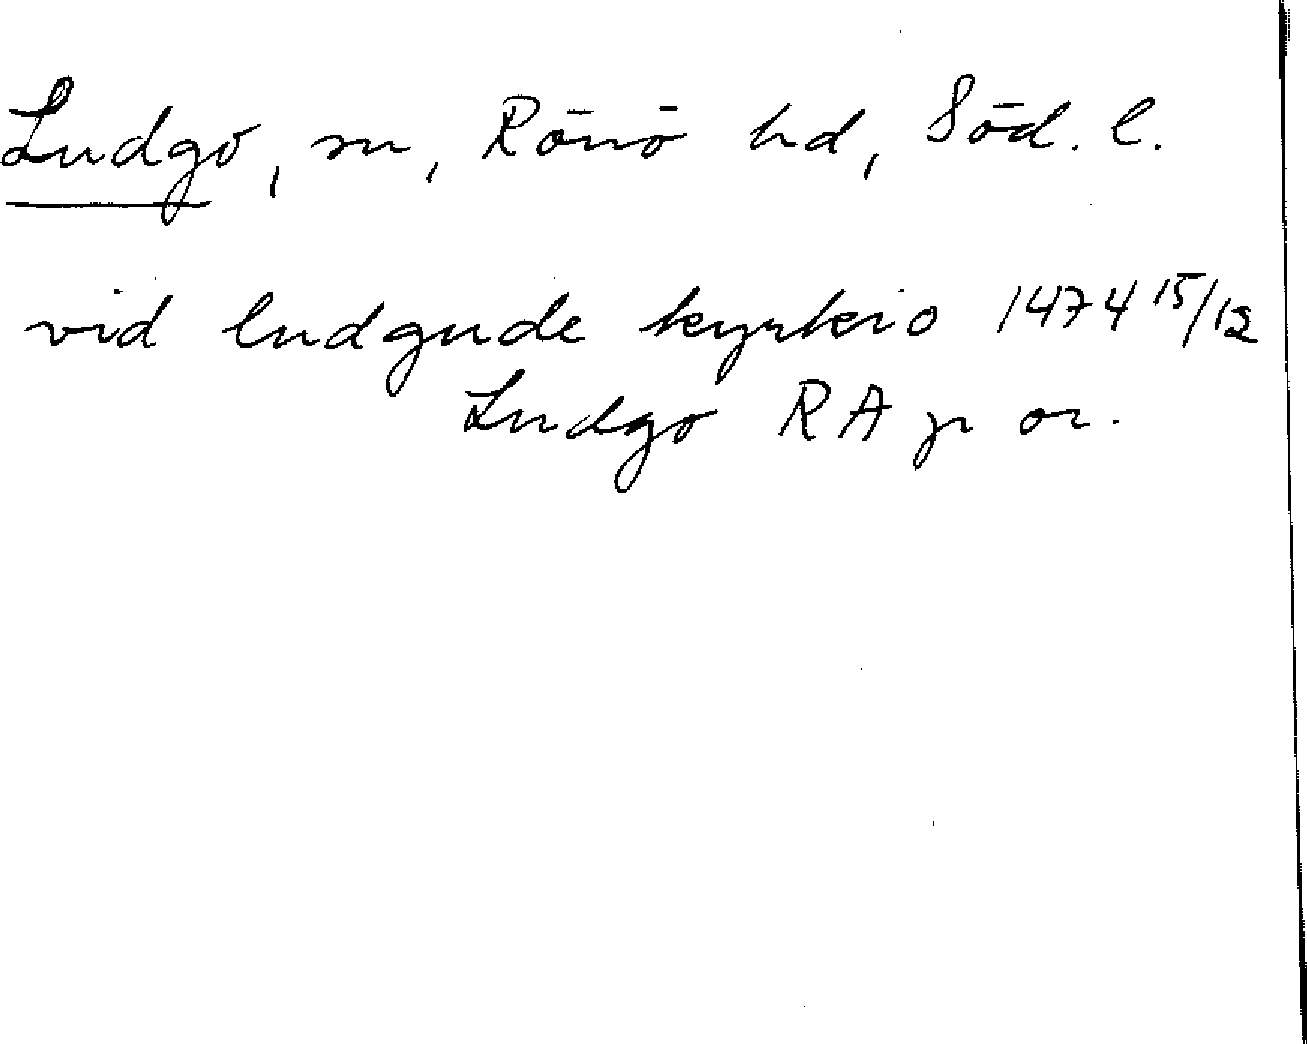 Ludgo, sn, Rönö hd, Söd. l.
vid ludgude kyrkio 1474 15/12
Ludgo RA p or.